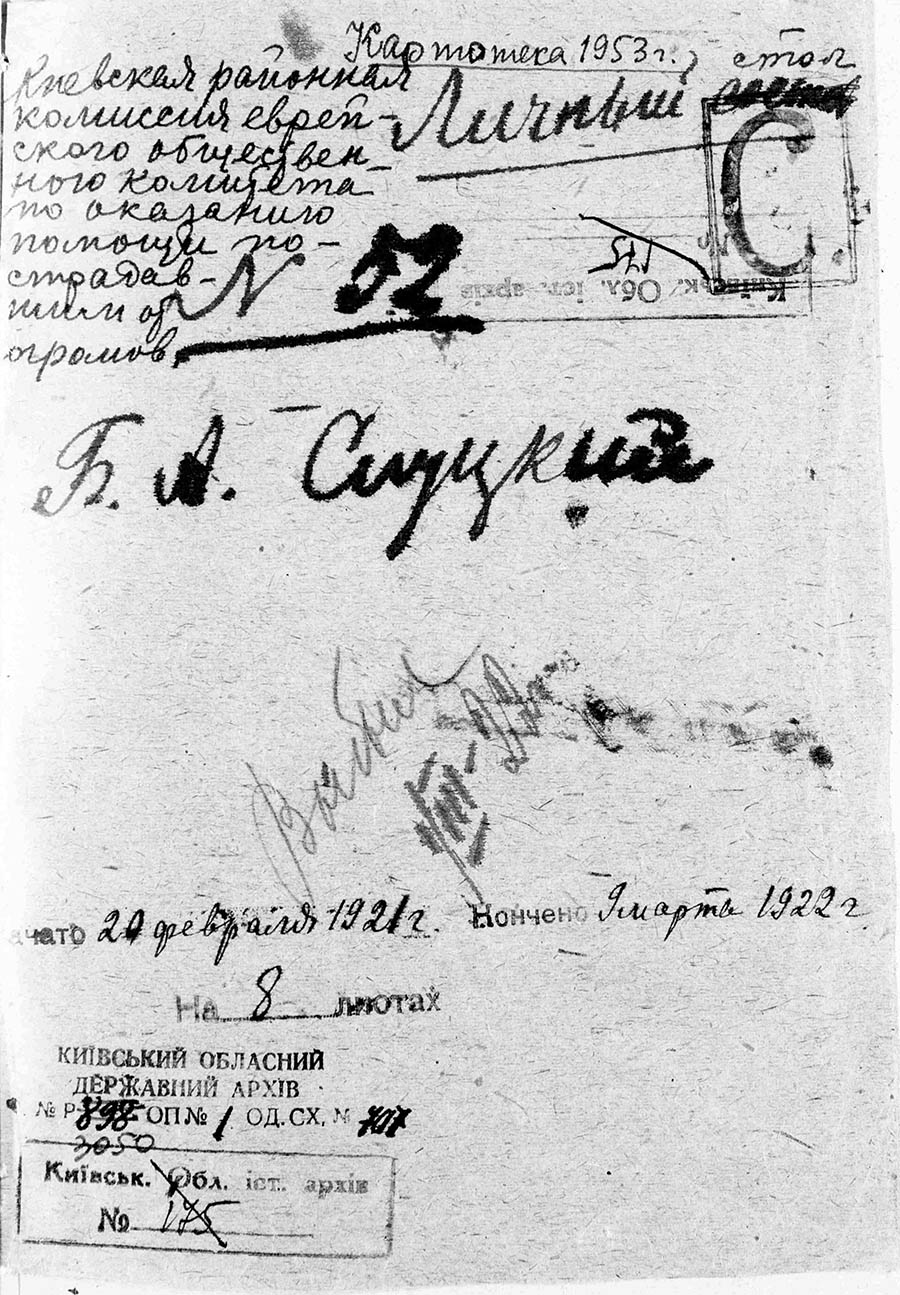 Картотека 1953 г., стол
Киевская районная
комиссия еврей-
ского обществен-
ного комитета
по оказанию
помощи по-
страдав-
шим от
огромов.
Личный
С
N 52
175
Київськ. Обл. іст. архів
Б. А. Слуцкий
Выбыл
ачато 20 февраля 1921 г. Кончено 9 марта 1922 г
На 8 листах
КИЇВСЬКИЙ ОБЛАСНИЙ
ДЕРЖАВНИЙ АРХІВ
№ Р- ОП № 1 ОД. СХ. №
3050
Київськ. Обл. іст. архів
№ 175